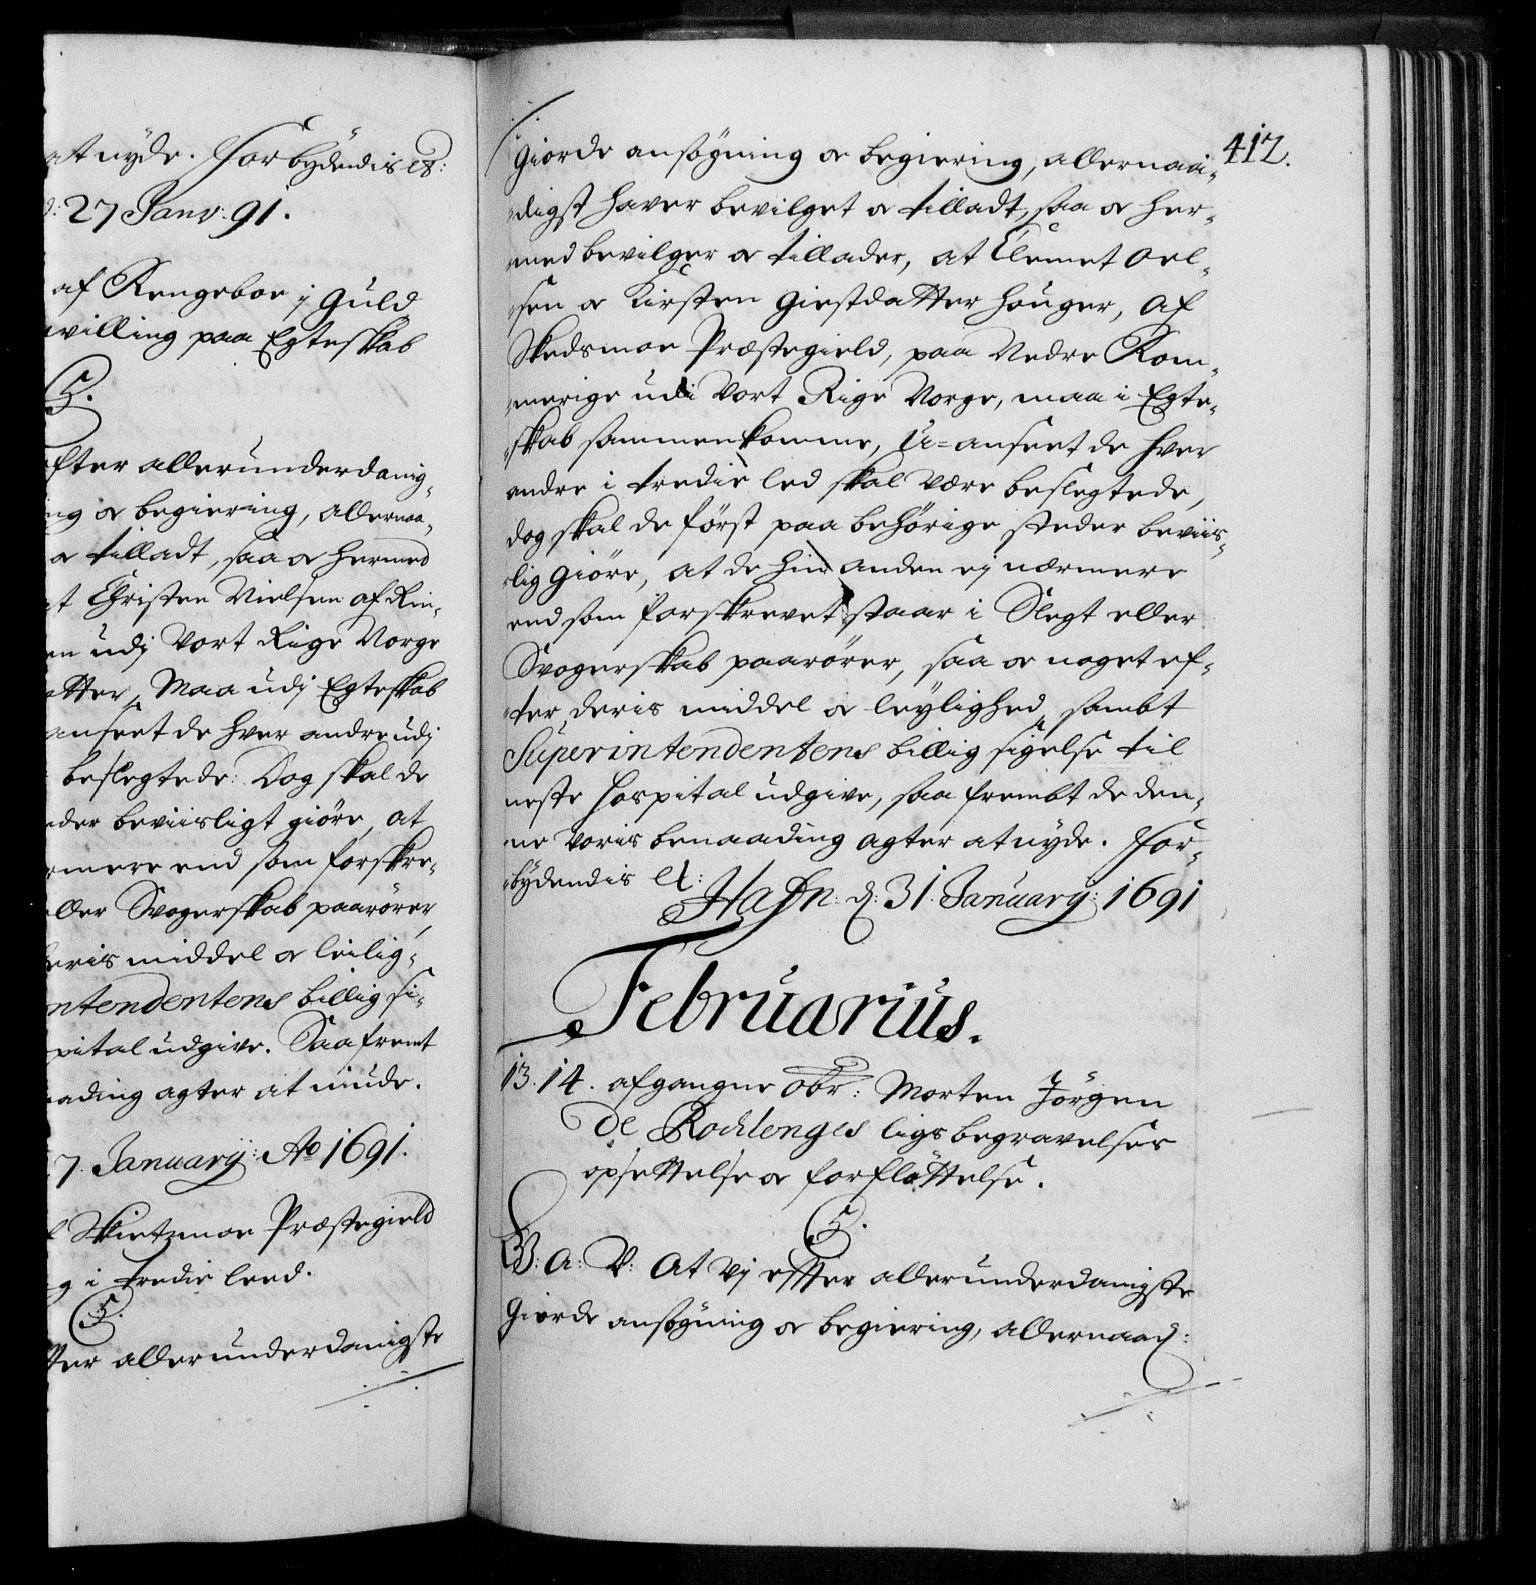 at nyde. Forbydendis etc:
d: 27 Janv: 91.
af Rengeboe j Guld
willing paa Egteskab
C5.
efter allerunderdanig-
ng oc begiering, allernaa-
oc tilladt, saa oc hermed
at Christen Nielsen af Rin-
en udj Vort Rige Norge
atter, Maa udj Egteskab
anseet de hver andre udj
beslegtede: Dog skal de
eder beviisligt giöre, at
ermere end som forskre-
eller Svogerskab paarörer,
deris middel oc leilig-
ntendentens billig si-
pital udgive. Saa fremt
ading agter at niude.
7. Januarij: Ao 1691.
f Skietzmoe Præstegield
g i tredie leed.
C5.
ter allerunderdanigste
412.
giorde ansögning oc begiering, allernaa-
digst haver bevilget oc tilladt, saa oc her-
med bevilger oc tillader, at Clemet Oel-
sen oc Kirsten Giestdatter Houger, af
Skedsmoe Præstegield, paa Nedre Rom-
merige udi Vort Rige Norge, maa i Egte-
skab sammenkomme, U-anseet de hver
andre i tredie led skal være beslegtede,
dog skal de först paa behörige steder beviis-
lig giöre, at de hin anden ej nærmere
end som forskrevet staar i Slegt eller
Svogerskab paarörer, saa oc noget ef-
ter deris middel oc leylighed, sambt
Superintendentens billig sigelse til
neste Hospital udgive, saa frembt de den-
ne voris benaading agter at nyde. For-
bydendis etc:
Hafn: d: 31. Januarij: 1691
Februarius.
13. 14. afgangne Obr: Morten Jörgen
De Rochlenges ligs begravelses
opsettelse oc forflöttelse.
C5.
G: A: V: At Vj efter allerunderdanigste
giorde ansögning oc begiering, allernaad: